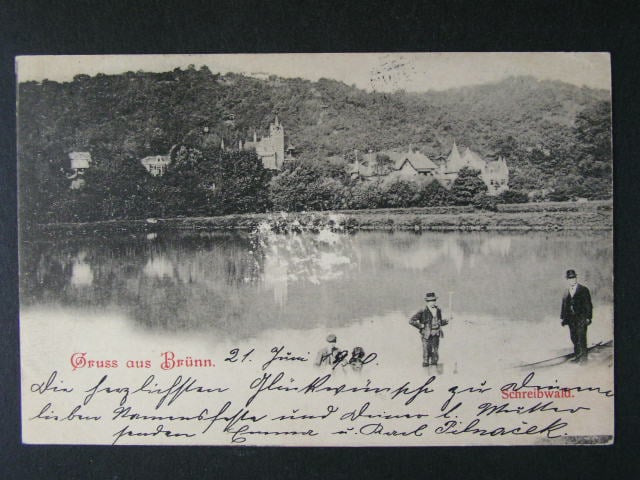 Gruss aus Brünn. 21. Juni 1900
Die herzlichsten Glückwünsche zu Deinem
Schreibwald.
lieben Namensfeste und Deiner l. Mutter
senden Emma u. Karl Pilnaček.